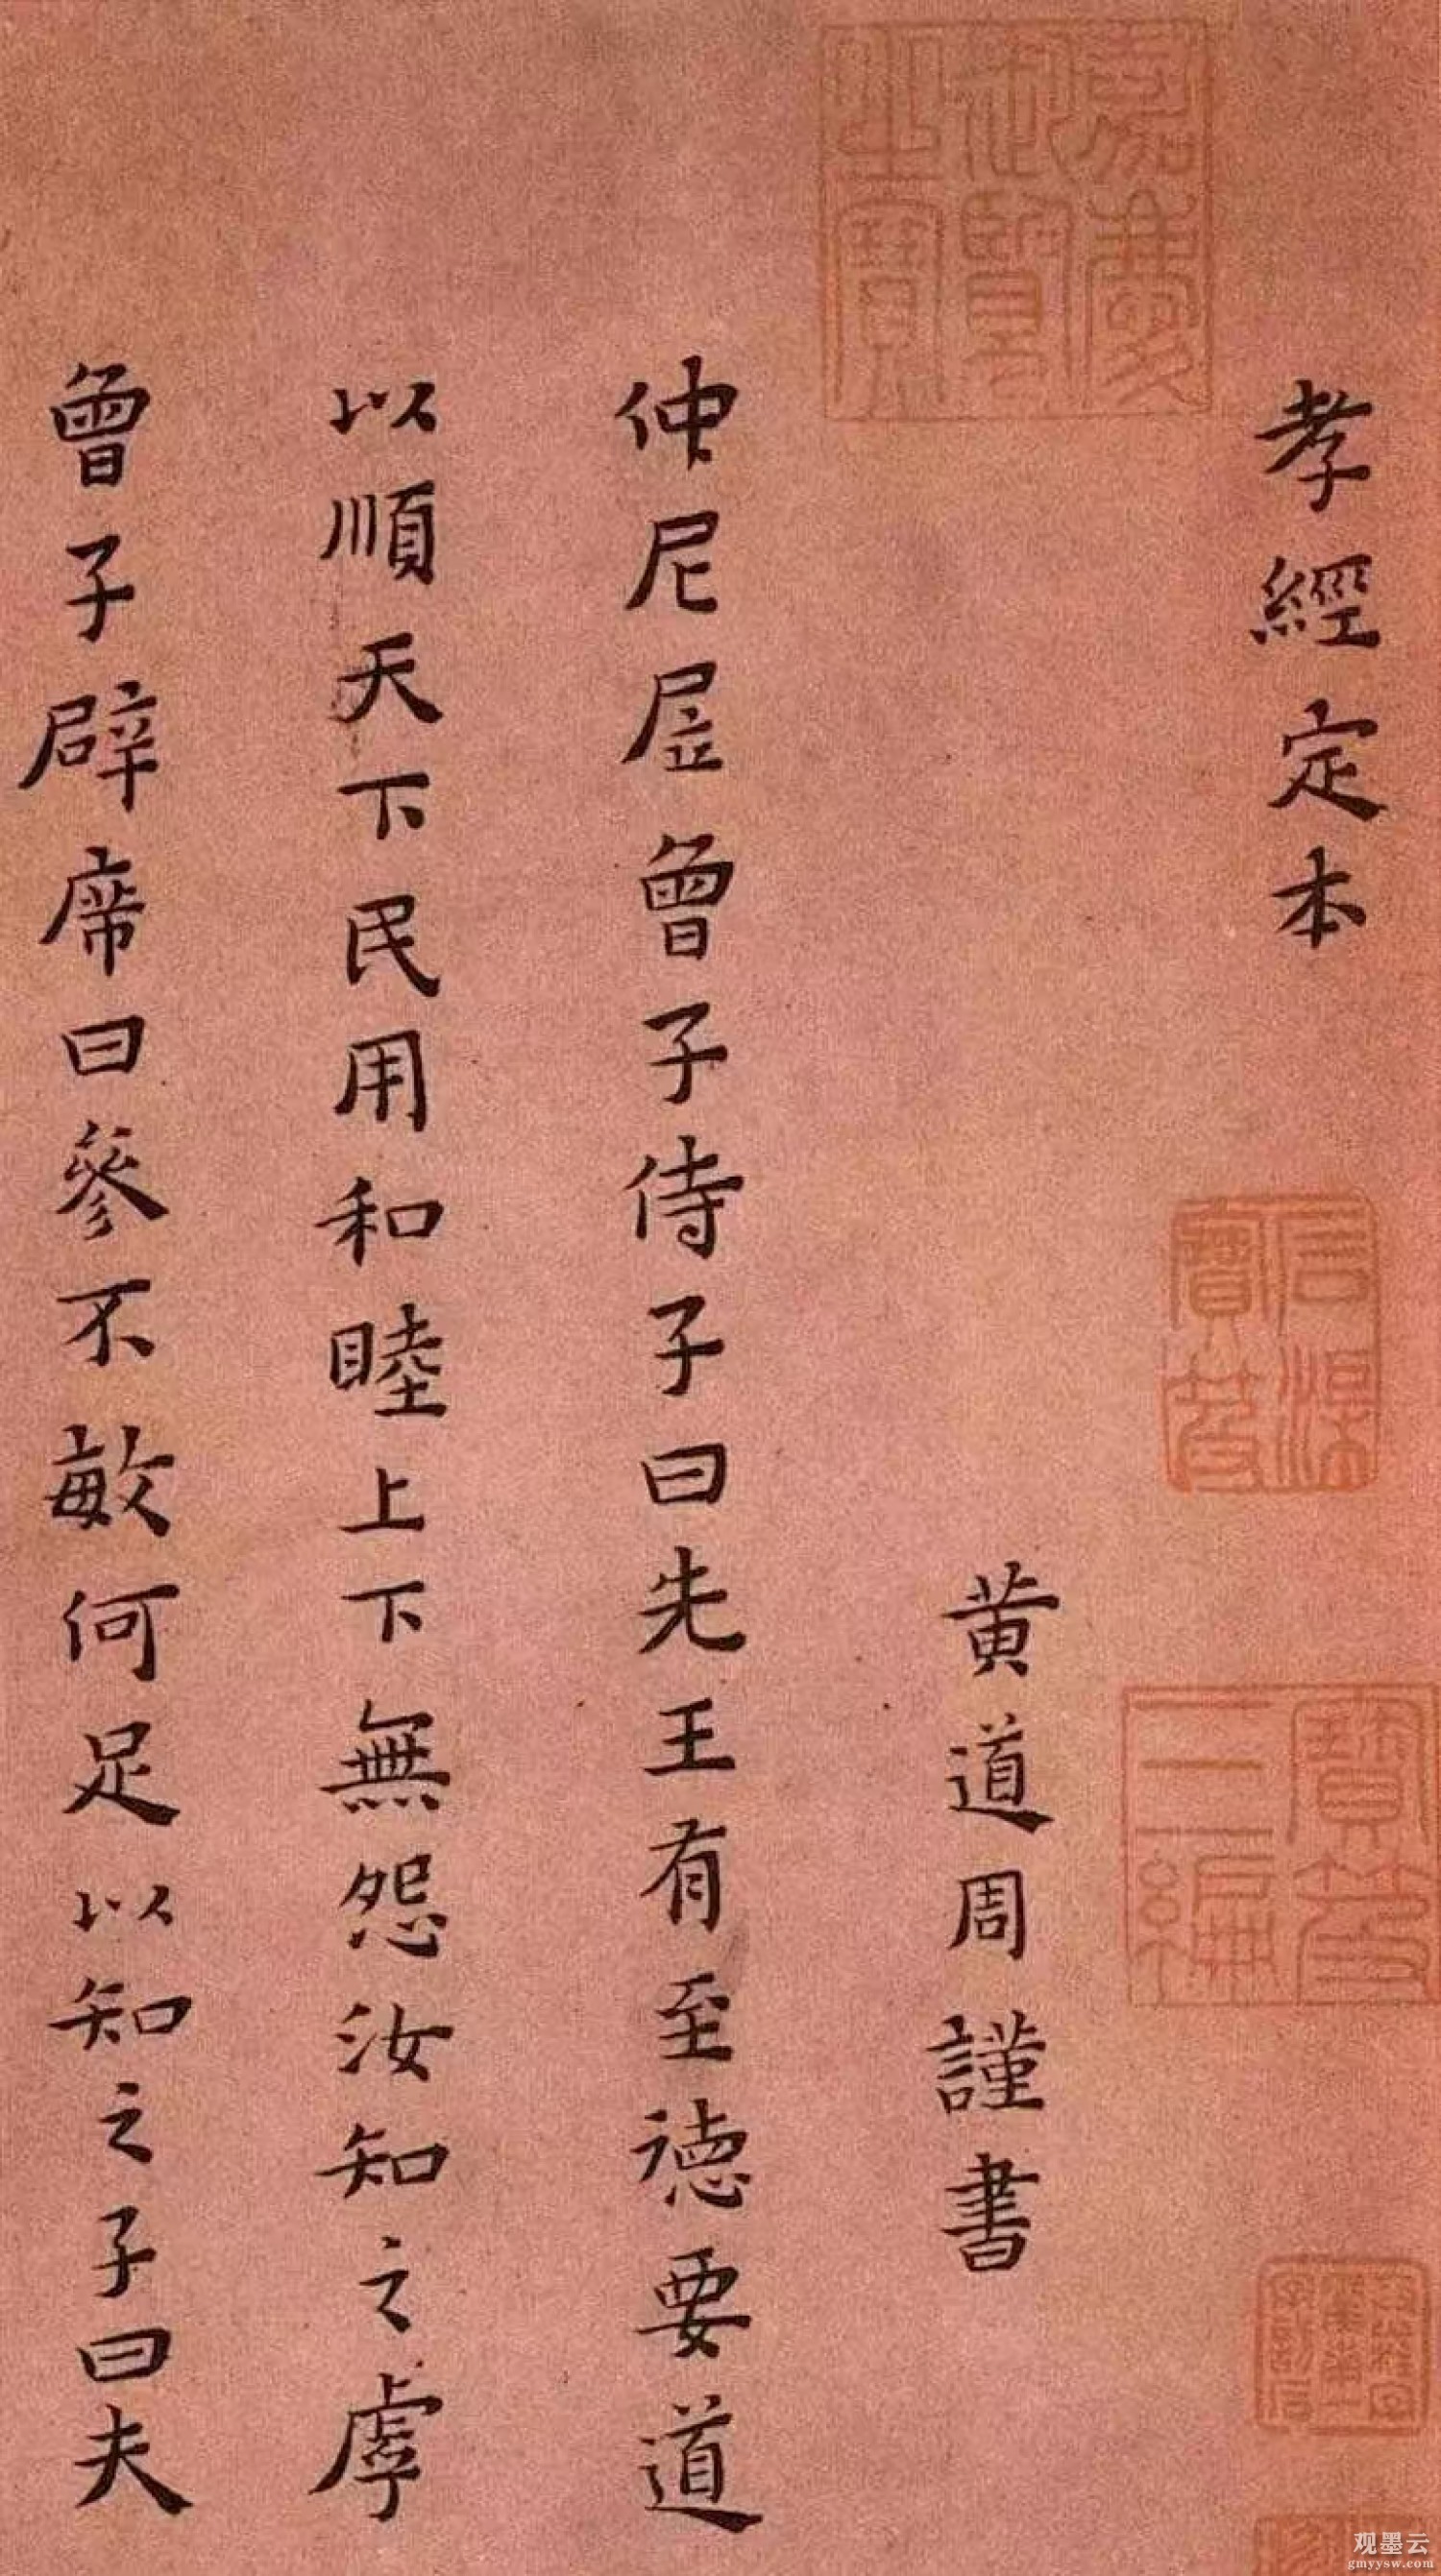 孝經定本
黄道周謹書
仲尼凥曾子侍子曰先王有至德要道
以順天下民用和睦上下無怨汝知之虖
曾子辟席曰參不敏何足以知之子曰夫
嘉慶御覽之寶
石渠寶笈
寶笈三編
观墨云
gmyysw.com